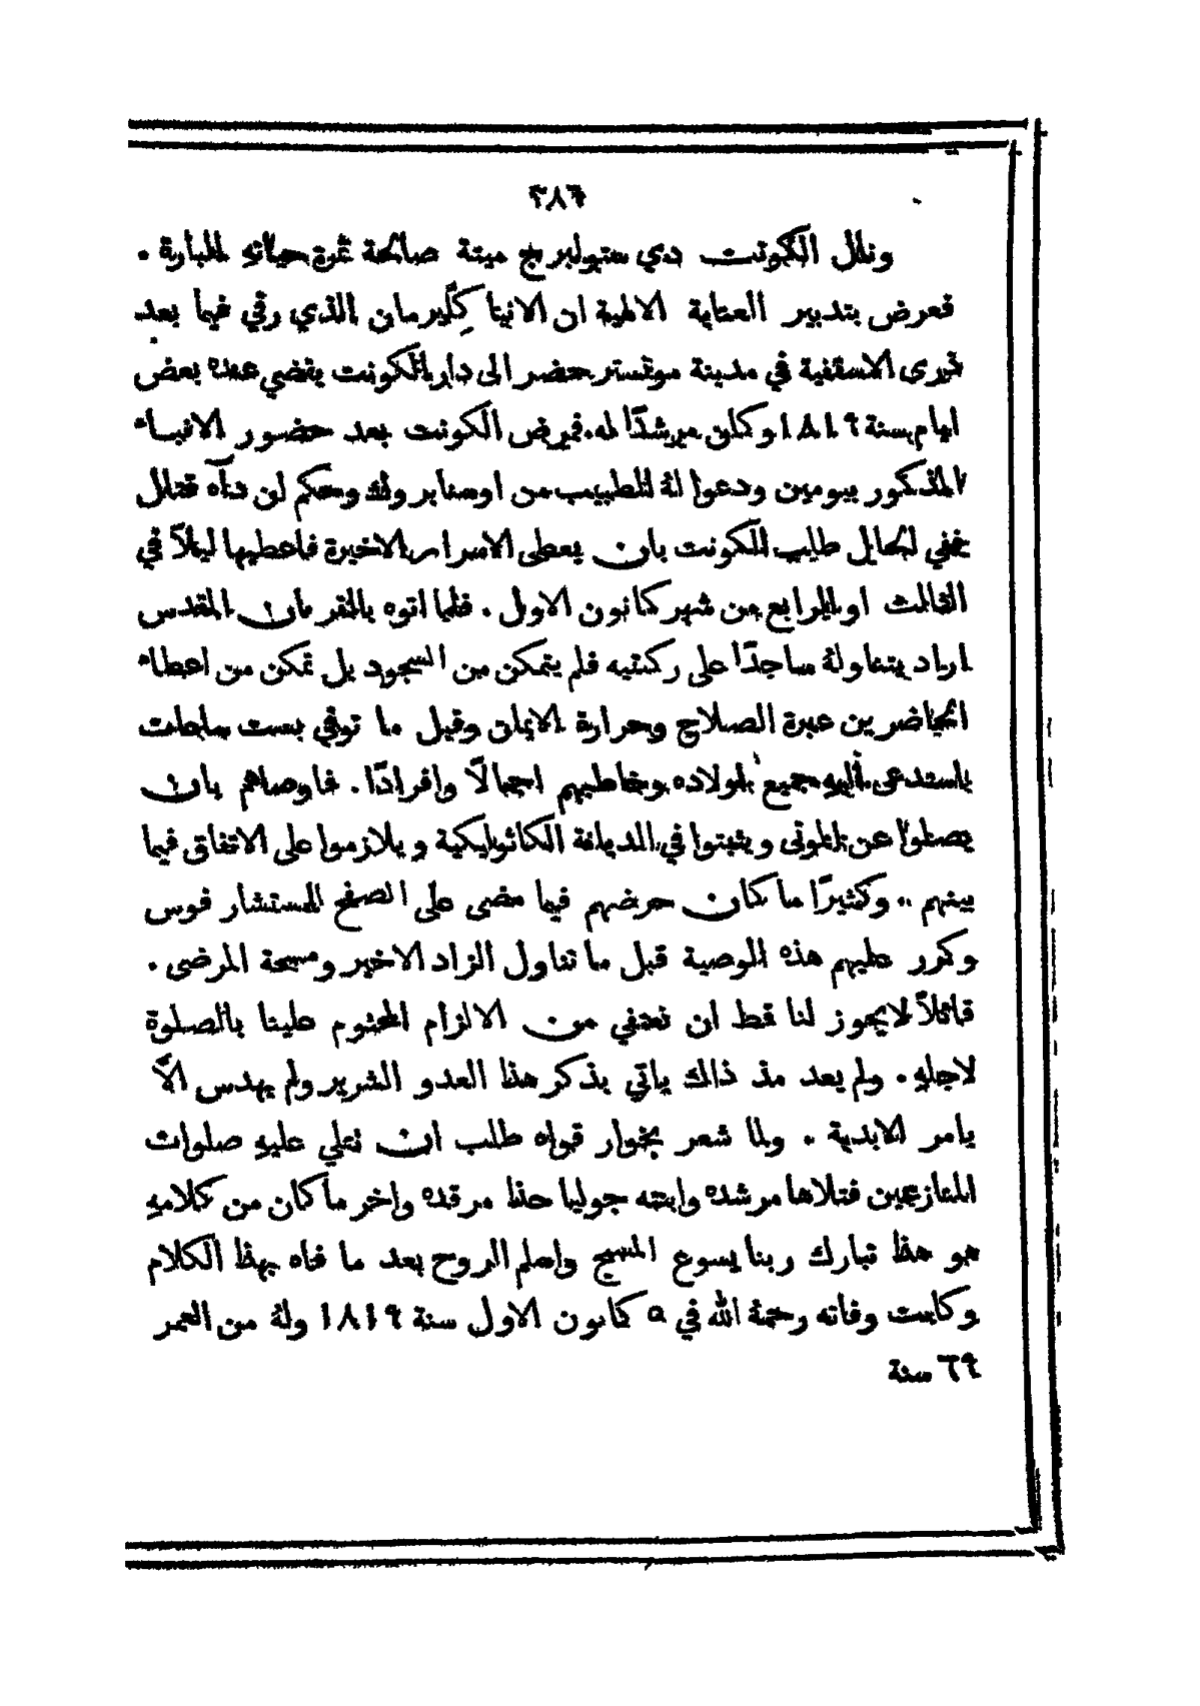 ٣٨٦
ونال الكونت دي ستولبرج ميتة صالحة ثمرة حياته البارة .
فعرض بتدبير العناية الالهية ان الانبا كليرمان الذي رقي فيما بعد
ذرى الاسقفية في مدينة مونستر حضر الى دار الكونت يقضي عنده بعض
ايام سنة ١٨١٩ وكان مرشدًا له فمرض الكونت بعد حضور الانبا
المذكور بيومين ودعوا لهُ الطبيب من اوسنابروك وحكم ان دآه قتال
ففي الحال طلب الكونت بان يعطى الاسرار الاخيرة فاعطيها ليلاً في
الثالث او الرابع من شهر كانون الاول . فلما اتوه بالقربان المقدس
اراد يتناولهُ ساجدًا على ركبتيه فلم يتمكن من السجود بل تمكن من اعطاء
الحاضرين عبرة الصلاح وحرارة الايمان وقبل ما توفي بست ساعات
استدعى اليه جميع اولاده وخاطبهم اجمالاً وافرادًا . فاوصاهم بان
يصلوا عن الموتى ويثبتوا في الديانة الكاثوليكية ويلازموا على الاتفاق فيما
بينهم .. وكثيرًا ما كان حرضهم فيما مضى على الصفح للمستشار فوس
وكرر عليهم هذه الوصية قبل ما تناول الزاد الاخير ومسحة المرضى .
قائلاً لا يجوز لنا قط ان نعفي من الالزام المحتوم علينا بالصلوة
لاجلهِ . ولم يعد مذ ذاك ياتي بذكر هذا العدو الشرير ولم يهدس الاّ
بامر الابدية . ولما شعر بخوار قواه طلب ان تتلي عليهِ صلوات
المنازعين فتلاها مرشده وابنته جوليا حذا مرقده واخر ما كان من كلامهِ
هو هذا تبارك ربنا يسوع المسيح واسلم الروح بعد ما فاه بهذا الكلام
وكانت وفاته رحمهُ الله في ٥ كانون الاول سنة ١٨١٩ ولهُ من العمر
٦٩ سنة